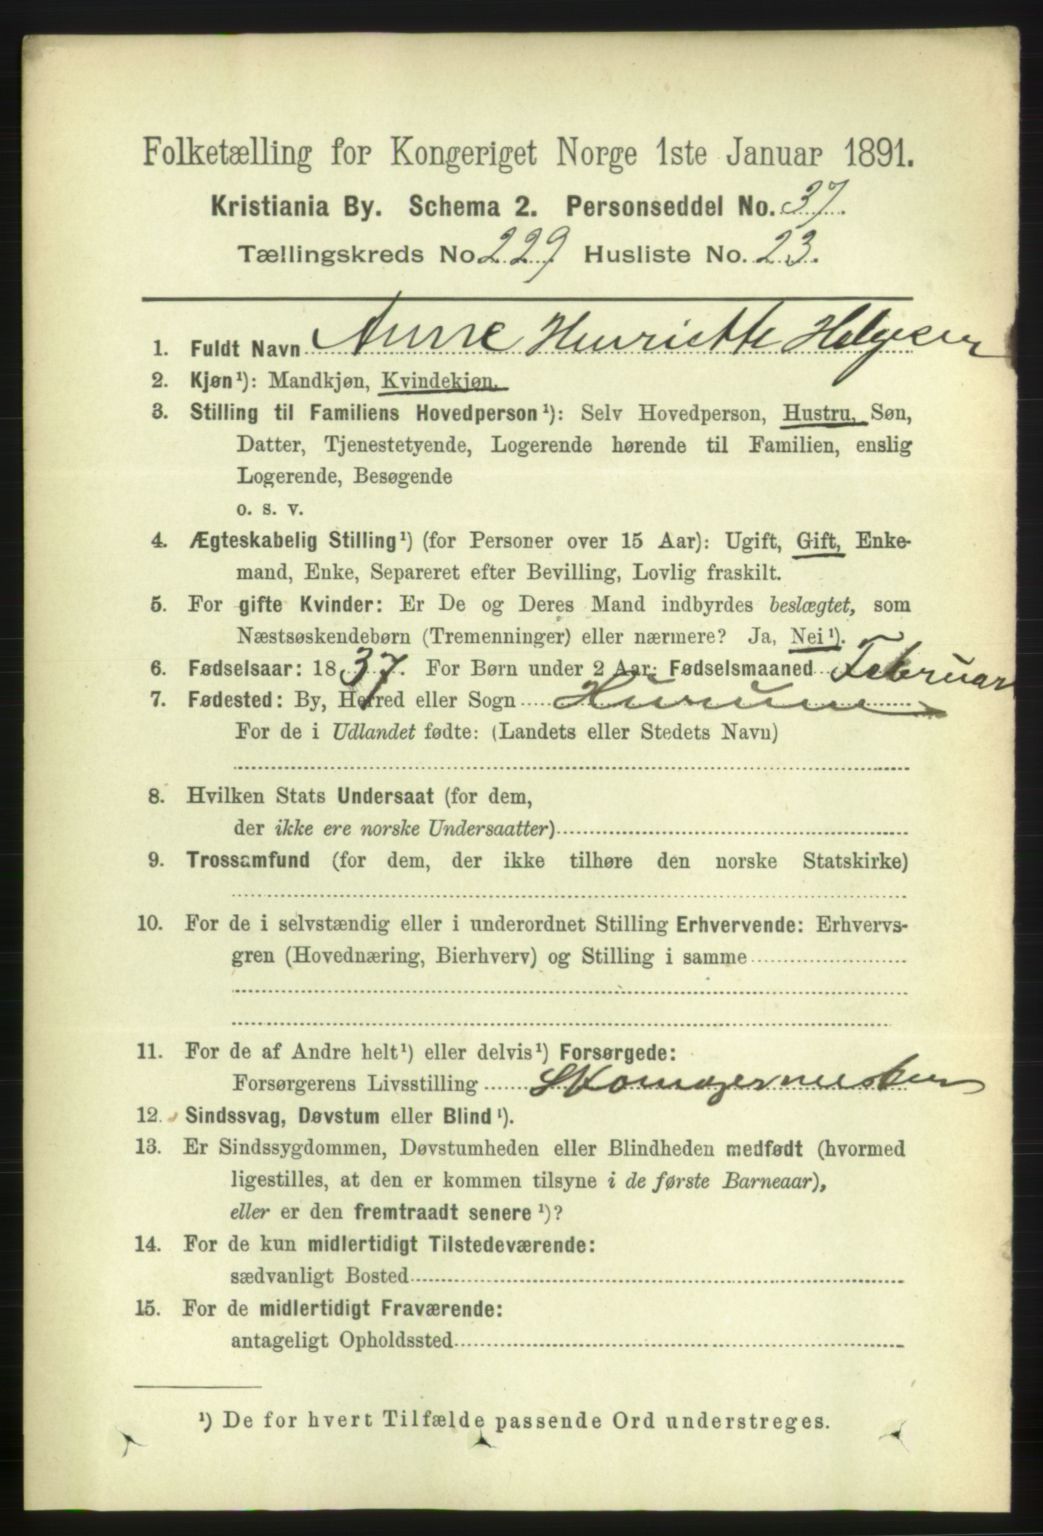 Folketælling for Kongeriget Norge 1ste Januar 1891.
Kristiania By. Schema 2. Personseddel No. 37.
Tællingskreds No. 229 Husliste No. 23.
1. Fuldt Navn Anne Henriette Helgesen
2. Kjøn¹): Mandkjøn, Kvindekjøn.
3. Stilling til Familiens Hovedperson¹): Selv Hovedperson, Hustru, Søn,
Datter, Tjenestetyende, Logerende hørende til Familien, enslig
Logerende, Besøgende
o. s. v.
4. Ægteskabelig Stilling¹) (for Personer over 15 Aar): Ugift, Gift, Enke-
mand, Enke, Separeret efter Bevilling, Lovlig fraskilt.
5. For gifte Kvinder: Er De og Deres Mand indbyrdes beslægtet, som
Næstsøskendebørn (Tremenninger) eller nærmere? Ja, Nei¹).
6. Fødselsaar: 1837. For Børn under 2 Aar: Fødselsmaaned Februar
7. Fødested: By, Herred eller Sogn Hurum
For de i Udlandet fødte: (Landets eller Stedets Navn)
8. Hvilken Stats Undersaat (for dem,
der ikke ere norske Undersaatter)
9. Trossamfund (for dem, der ikke tilhøre den norske Statskirke)
10. For de i selvstændig eller i underordnet Stilling Erhvervende: Erhvervs-
gren (Hovednæring, Bierhverv) og Stilling i samme
11. For de af Andre helt¹) eller delvis¹) Forsørgede:
Forsørgerens Livsstilling Skomagermester
12. Sindssvag, Døvstum eller Blind¹).
13. Er Sindssygdommen, Døvstumheden eller Blindheden medfødt (hvormed
ligestilles, at den er kommen tilsyne i de første Barneaar),
eller er den fremtraadt senere¹)?
14. For de kun midlertidigt Tilstedeværende:
sædvanligt Bosted
15. For de midlertidigt Fraværende:
antageligt Opholdssted
¹) De for hvert Tilfælde passende Ord understreges.